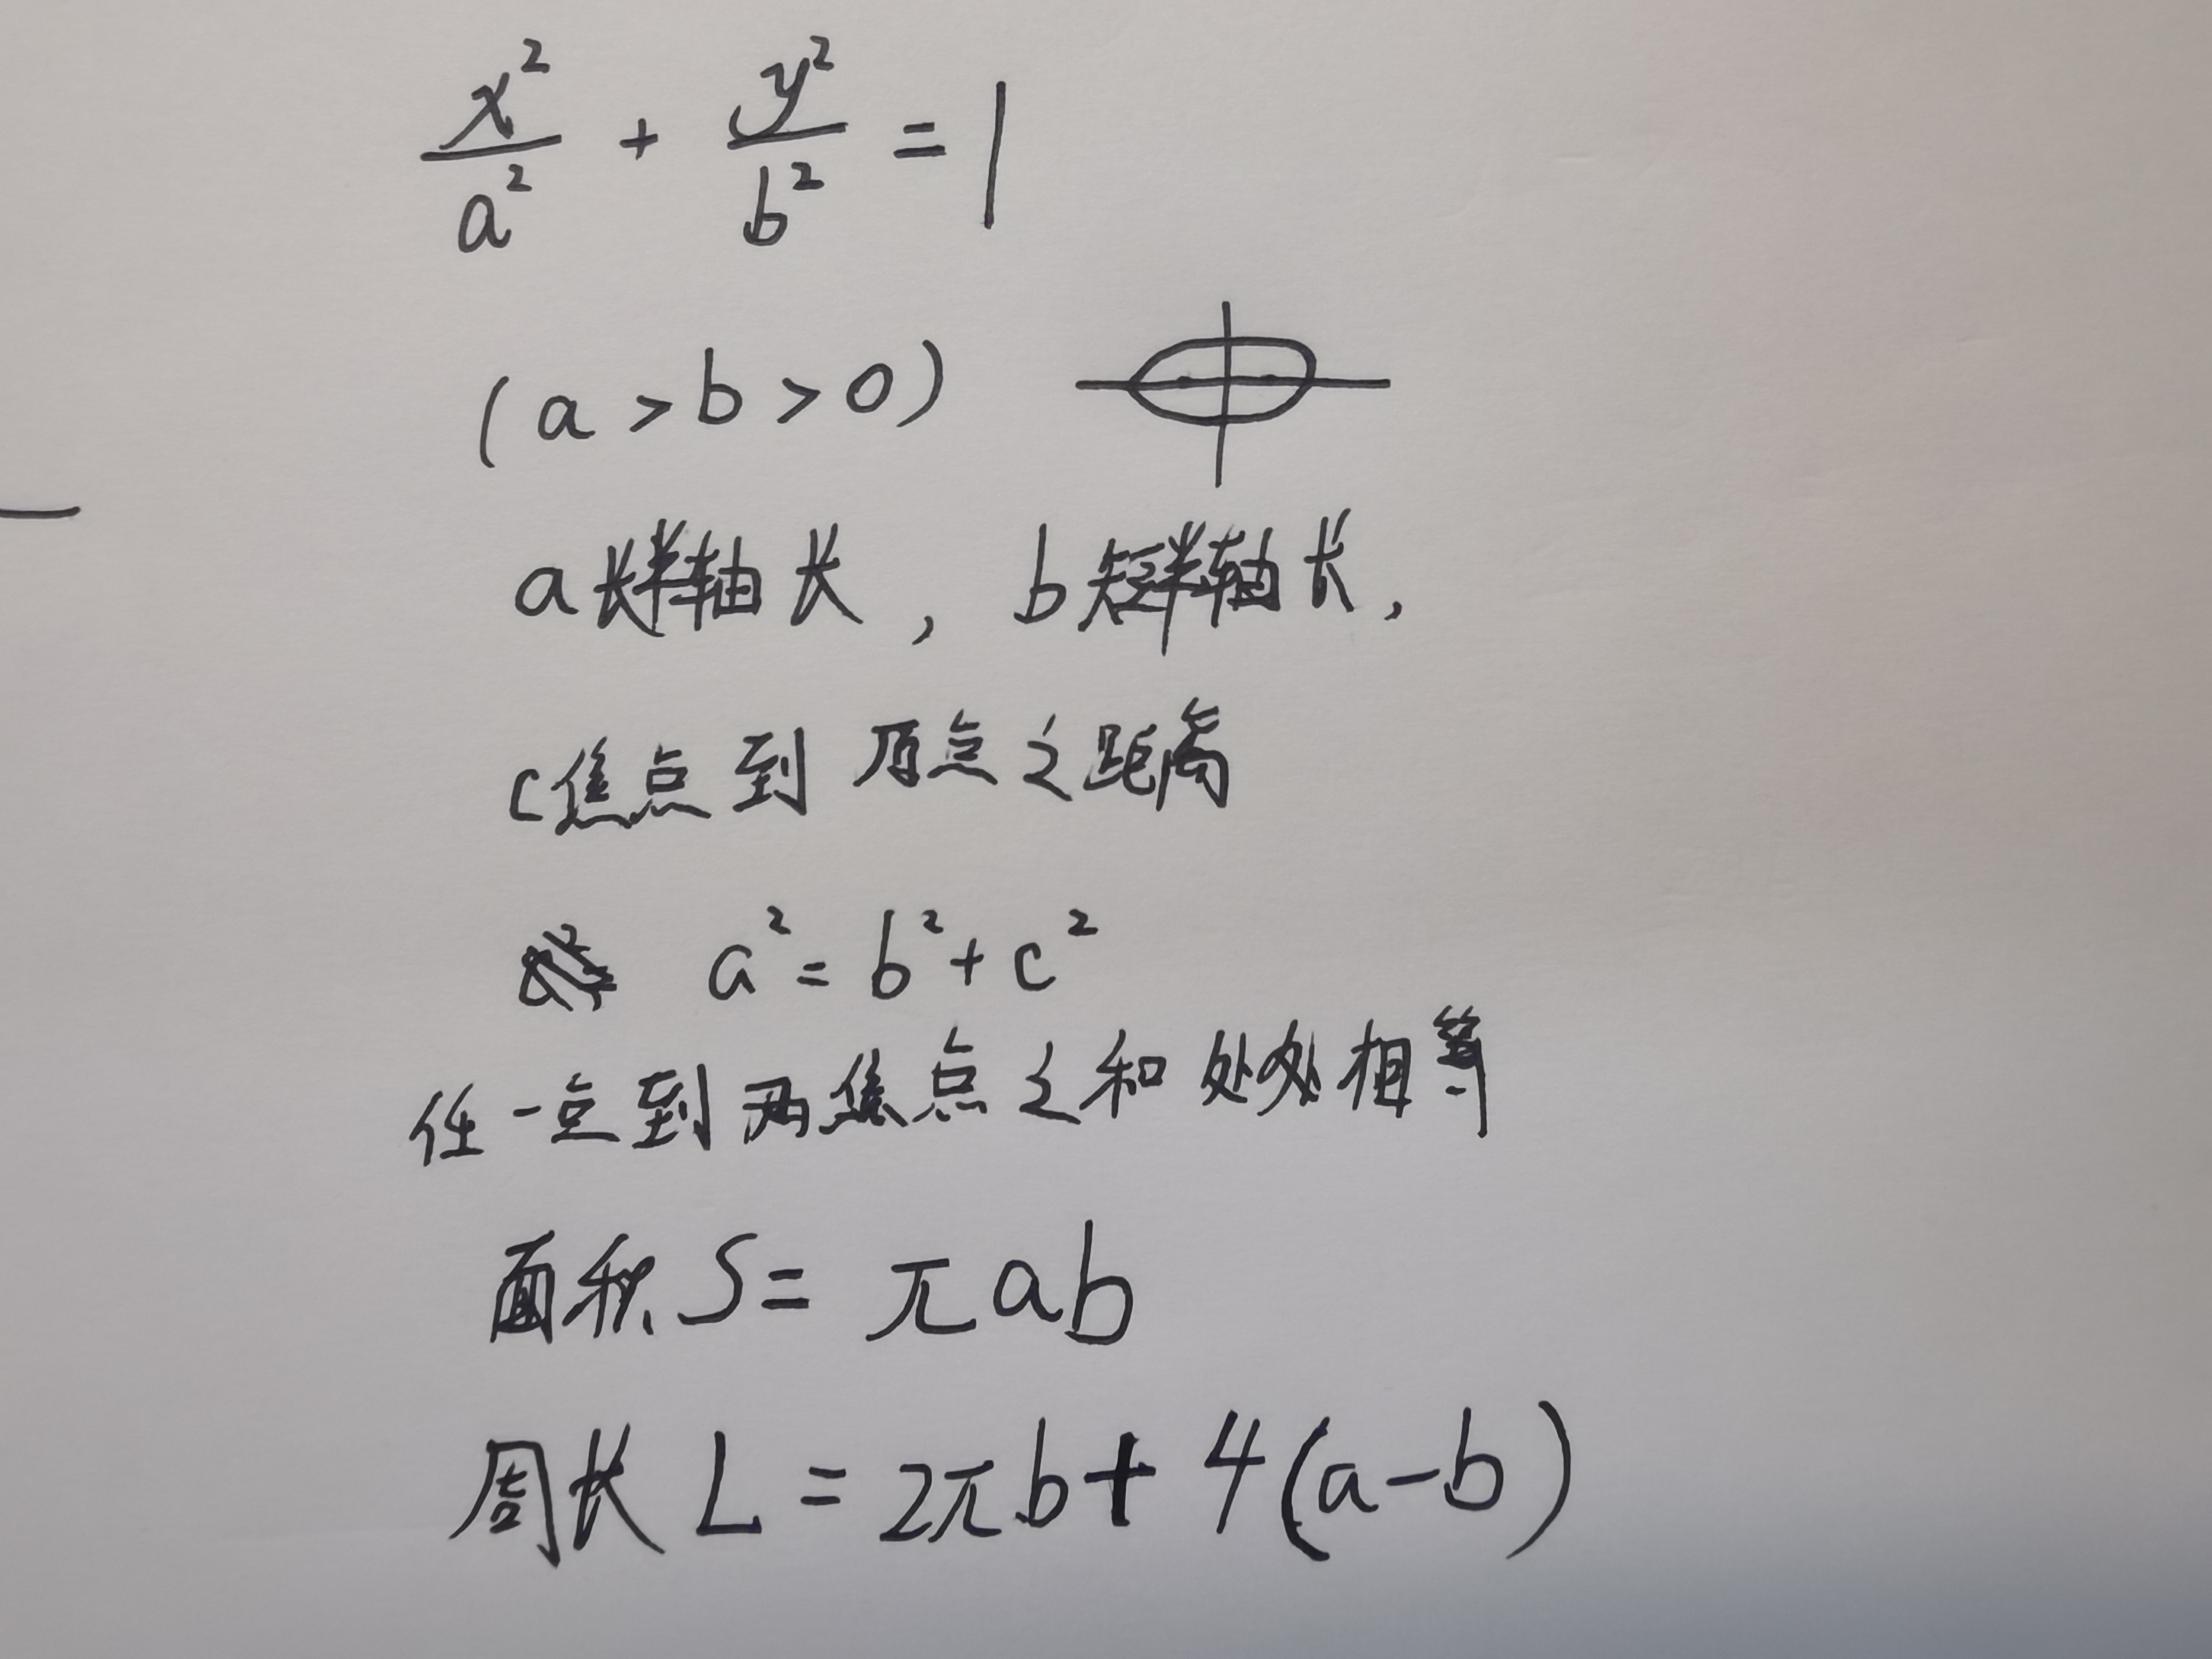 x²/a² + y²/b² = 1
(a > b > 0)
a长半轴长，b短半轴长，
c焦点到原点之距离
a² = b² + c²
任一点到两焦点之和处处相等
面积 S = πab
周长 L = 2πb + 4(a-b)